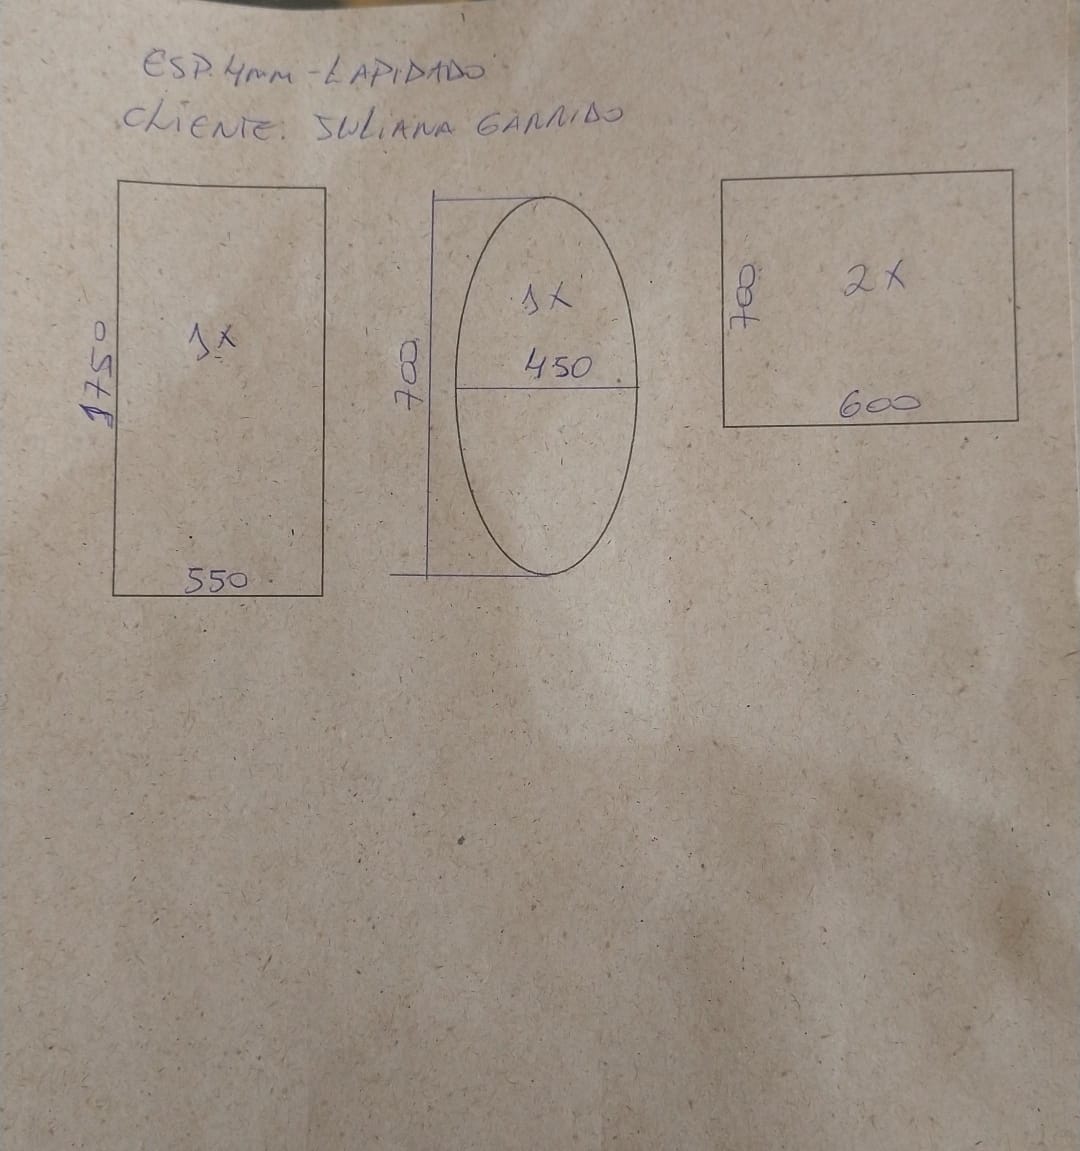 ESP. 4mm - LAPIDADO
CLIENTE: JULIANA GARRIDO
1750
1x
550
700
1x
450
700
2x
600